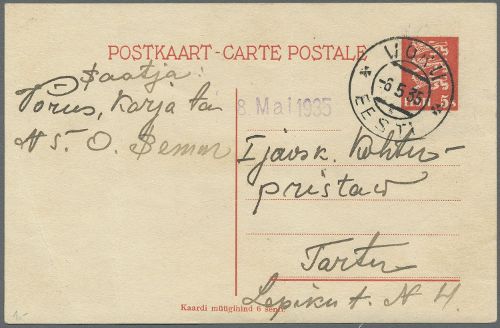 POSTKAART - CARTE POSTALE
VÕRU
-6.5.35
EESTI
EESTI 5 S
Saatja:
Võrus, Karja tän
N 5. O.
8. Mai 1935
I jaosk. Kohtu-
pristaw
Tartu
Lepiku t. N 4
Kaardi müügihind 6 senti.
1.-